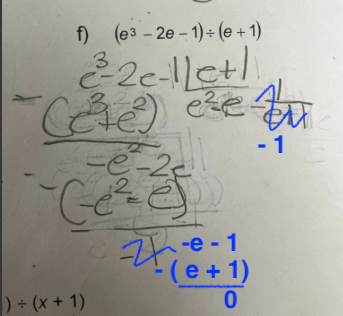 f) (e³ – 2e – 1) ÷ (e + 1)
e³-2e-1 e+1
-(e³+e²) e²-e-
- 1
-e²-2e
-(-e²-e)
-e - 1
-( e + 1)
0
) ÷ (x + 1)